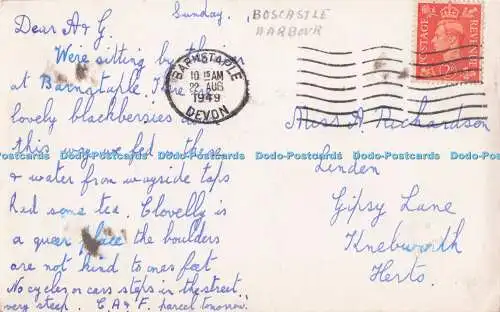 Sunday.
BOSCASTLE
HARBOUR
Dear A & G.
We're sitting by the
at Barnstaple.
lovely blackberries
this way we fed these
& water from wayside taps
had some tea. Clovelly is
a queer place the boulders
are not kind to ones feet
No cycles or cars steps in the street
very steep. C, A & F. parcel tomorrow.
BARNSTAPLE
10 15 AM
22 AUG
1949
DEVON
POSTAGE
REVENUE
Miss A. Richardson
Linden
Gipsy Lane
Knebworth
Herts.
Dodo-Postcards Dodo-Postcards Dodo-Postcards Dodo-Postcards Dodo-Postcards Dodo-Postcards